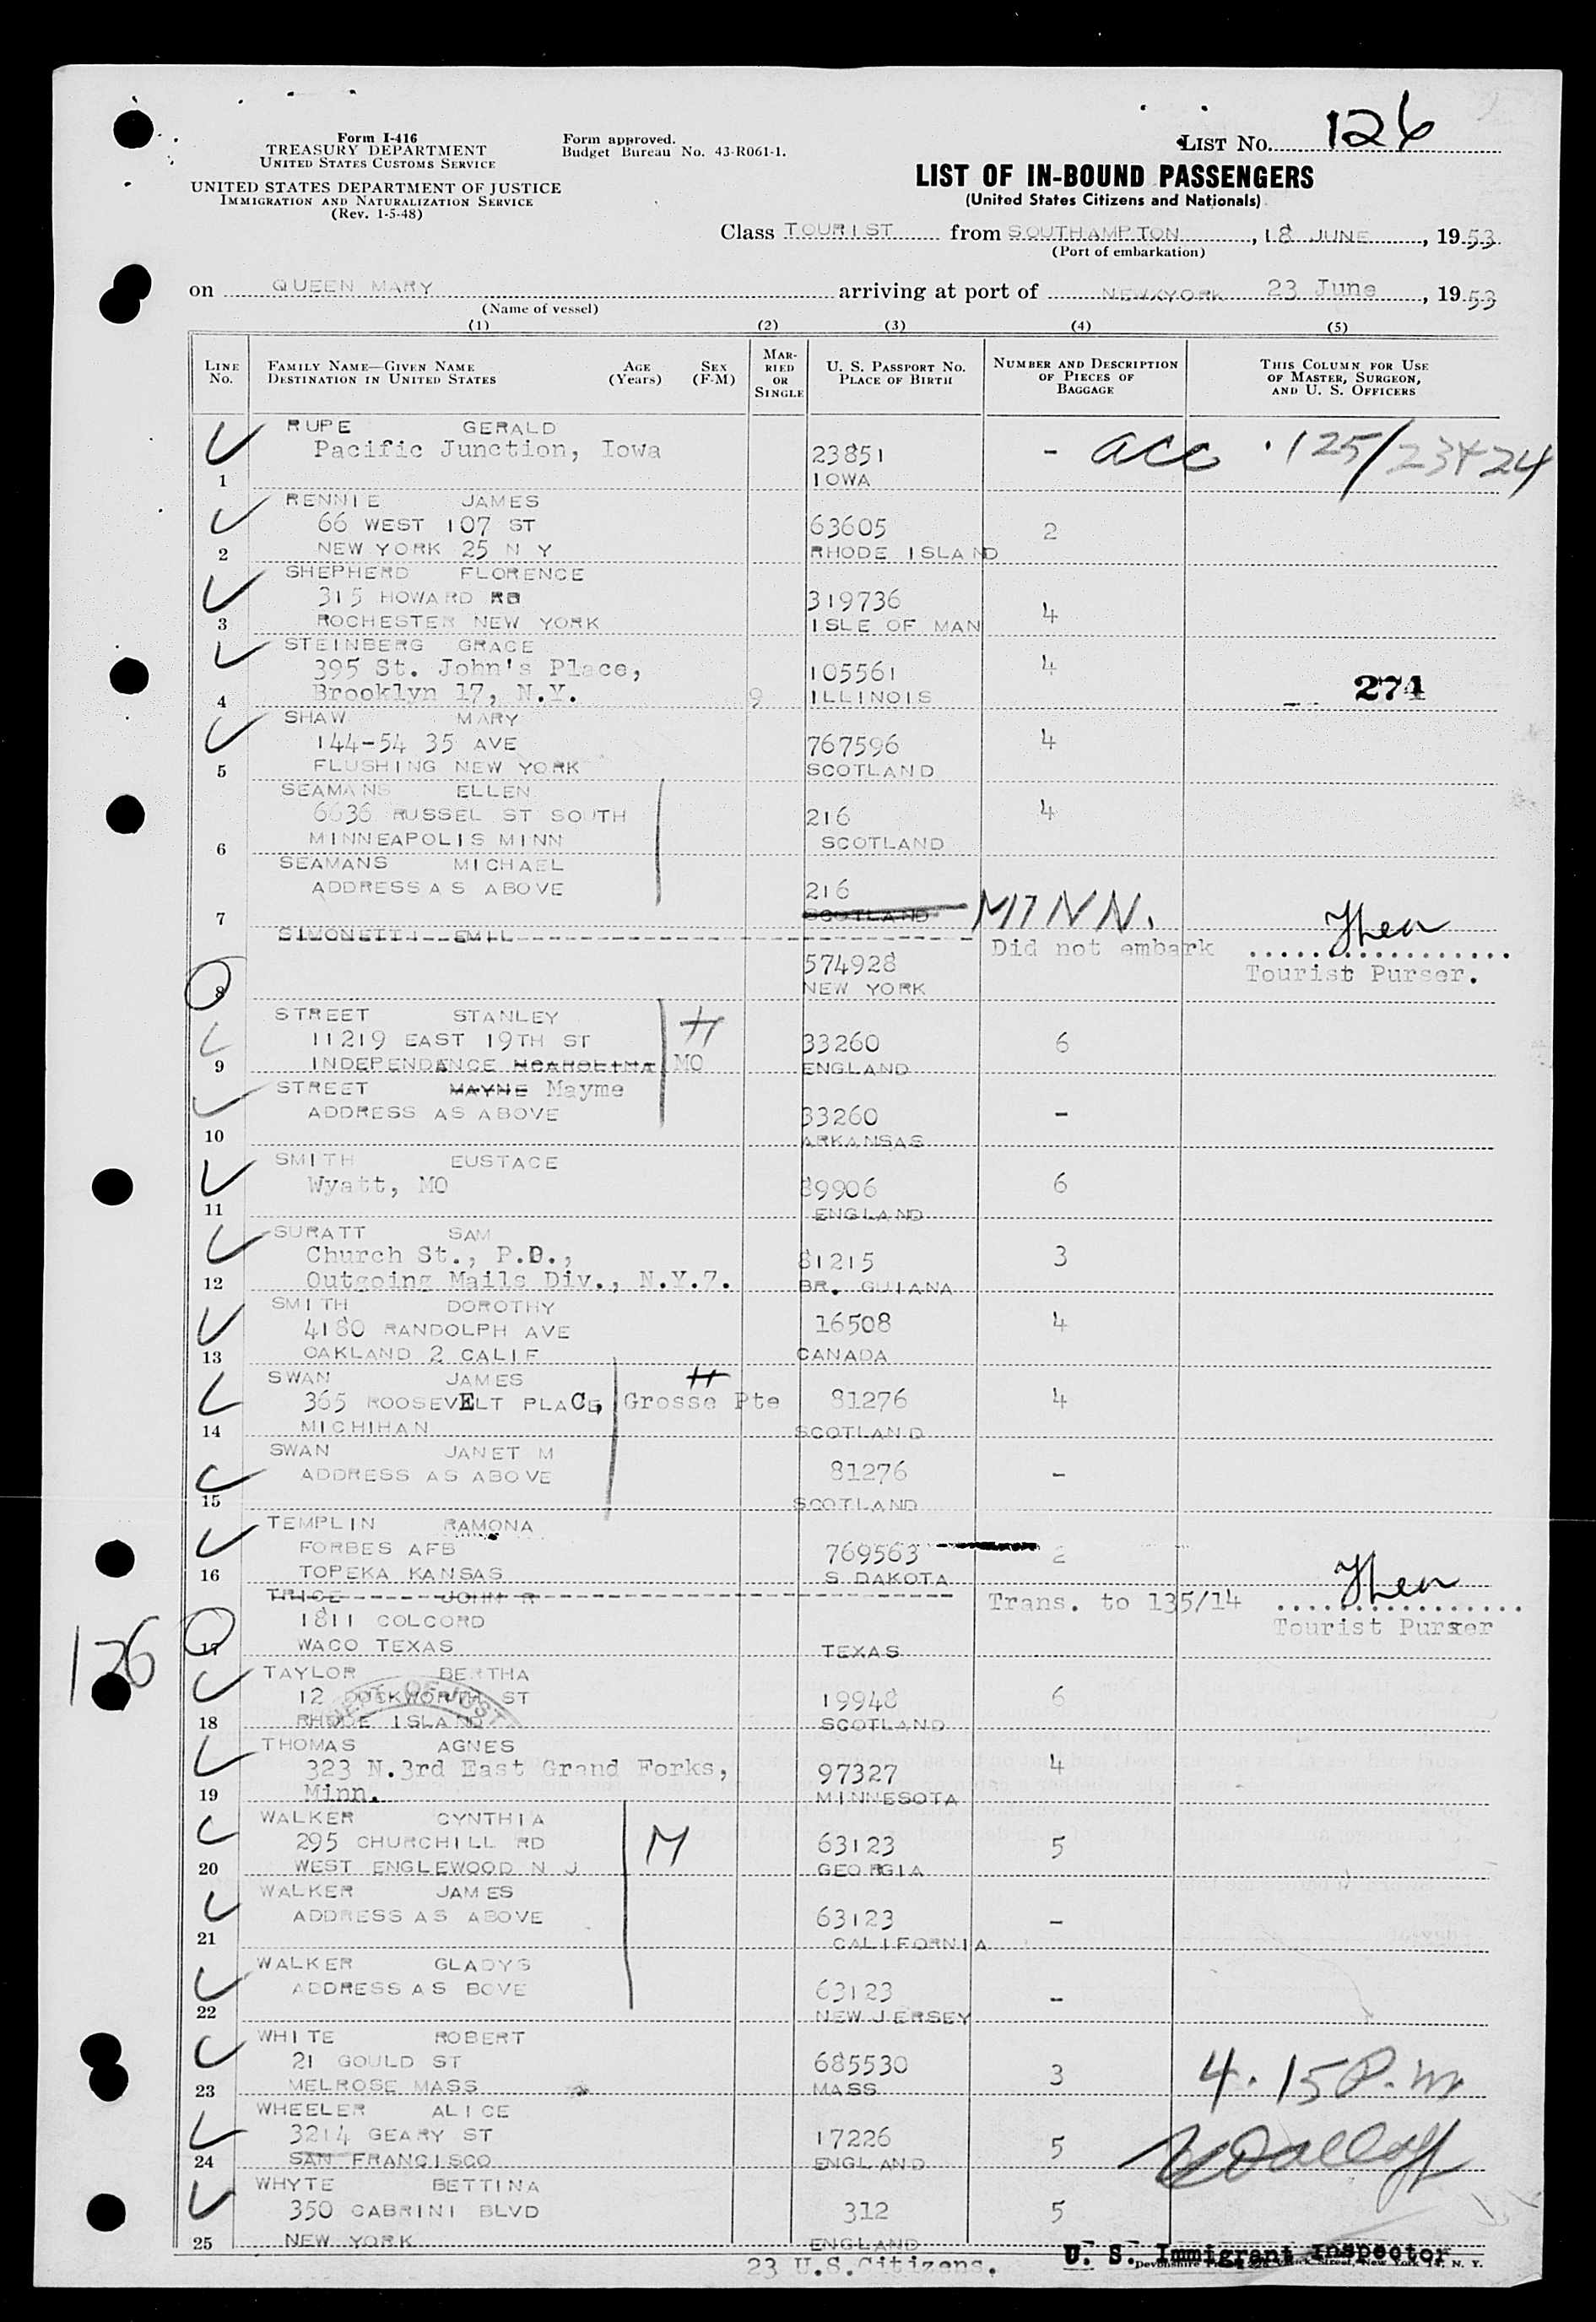 Form I-416
TREASURY DEPARTMENT
UNITED STATES CUSTOMS SERVICE
UNITED STATES DEPARTMENT OF JUSTICE
IMMIGRATION AND NATURALIZATION SERVICE
(Rev. 1-5-48)
Form approved.
Budget Bureau No. 43-R061-1.
LIST No. 126
LIST OF IN-BOUND PASSENGERS
(United States Citizens and Nationals)
Class TOURIST from SOUTHAMPTON, 18 JUNE, 1953
(Port of embarkation)
on QUEEN MARY arriving at port of NEWXYORK 23 June, 1953
(Name of vessel)
(1) (2) (3) (4) (5)
LINE No.
FAMILY NAME—GIVEN NAME
DESTINATION IN UNITED STATES
AGE (Years)
SEX (F-M)
MARRIED OR SINGLE
U. S. PASSPORT NO.
PLACE OF BIRTH
NUMBER AND DESCRIPTION OF PIECES OF BAGGAGE
THIS COLUMN FOR USE OF MASTER, SURGEON, AND U. S. OFFICERS
RUPE GERALD
Pacific Junction, Iowa 23851 - acc . 125/23424
1 IOWA
RENNIE JAMES
66 WEST 107 ST 63605 2
2 NEW YORK 25 N Y RHODE ISLAND
SHEPHERD FLORENCE
315 HOWARD RD 319736 4
3 ROCHESTER NEW YORK ISLE OF MAN
STEINBERG GRACE
395 St. John's Place, 105561 4
4 Brooklyn 17, N.Y. 9 ILLINOIS 274
SHAW MARY
144-54 35 AVE 767596 4
5 FLUSHING NEW YORK SCOTLAND
SEAMANS ELLEN
6636 RUSSEL ST SOUTH 216 4
6 MINNEAPOLIS MINN SCOTLAND
SEAMANS MICHAEL
ADDRESS AS ABOVE 216
7 SCOTLAND MINN.
SIMONETTI EMIL Did not embark
574928 Tourist Purser.
8 NEW YORK
STREET STANLEY H
11219 EAST 19TH ST 33260 6
9 INDEPENDANCE NCAROLINA MO ENGLAND
STREET MAYNE Mayme
ADDRESS AS ABOVE 33260 -
10 ARKANSAS
SMITH EUSTACE
Wyatt, MO 89906 6
11 ENGLAND
SURATT SAM
Church St., P.O., 81215 3
12 Outgoing Mails Div., N.Y.7. BR. GUIANA
SMITH DOROTHY
4180 RANDOLPH AVE 16508 4
13 OAKLAND 2 CALIF CANADA
SWAN JAMES H
365 ROOSEVELT PLACE, Grosse Pte 81276 4
14 MICHIHAN SCOTLAND
SWAN JANET M
ADDRESS AS ABOVE 81276 -
15 SCOTLAND
TEMPLIN RAMONA
FORBES AFB 769563 2
16 TOPEKA KANSAS S DAKOTA
TRICE JOHN R Trans. to 135/14
1811 COLCORD Tourist Purser
17 WACO TEXAS TEXAS
126
TAYLOR BERTHA
12 DUCKWORTH ST 19948 6
18 RHODE ISLAND SCOTLAND
DEPT. OF JUST
THOMAS AGNES
323 N.3rd East Grand Forks, 97327 4
19 Minn. MINNESOTA
WALKER CYNTHIA
295 CHURCHILL RD M 63123 5
20 WEST ENGLEWOOD N J GEORGIA
WALKER JAMES
ADDRESS AS ABOVE 63123 -
21 CALIFORNIA
WALKER GLADYS
ADDRESS AS BOVE 63123 -
22 NEW JERSEY
WHITE ROBERT
21 GOULD ST 685530 3 4.15 P.m
23 MELROSE MASS MASS
WHEELER ALICE
3214 GEARY ST 17226 5
24 SAN FRANCISCO ENGLAND
WHYTE BETTINA
350 CABRINI BLVD 312 5
25 NEW YORK ENGLAND
23 U.S.Citizens. U. S. Immigrant Inspector